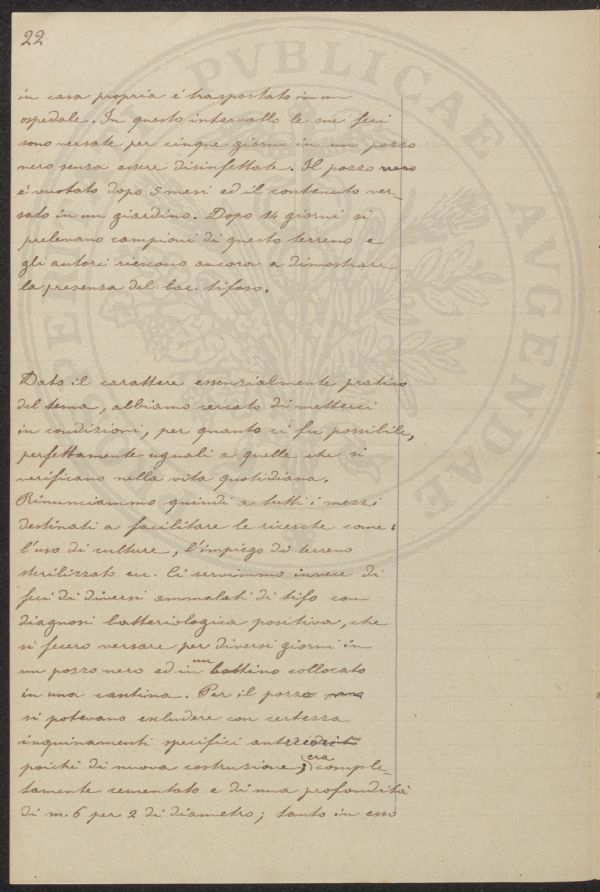 22
in casa propria è trasportato in un
ospedale. In questo intervallo le sue feci
sono versate per cinque giorni in un pozzo
nero senza essere disinfettate. Il pozzo nero
è vuotato dopo 5 mesi ed il contenuto ver-
sato in un giardino. Dopo 14 giorni si
prelevano campioni di questo terreno e
gli autori riescono ancora a dimostrare
la presenza del bac. tifoso.
Dato il carattere essenzialmente pratico
del tema, abbiamo cercato di metterci
in condizioni, per quanto ci fu possibile,
perfettamente uguali a quelle che si
verificano nella vita quotidiana.
Rinunciammo quindi a tutti i mezzi
destinati a facilitare le ricerche come:
l'uso di culture, l'impiego di terreno
sterilizzato ecc. Ci servimmo invece di
feci di diversi ammalati di tifo con
diagnosi batteriologica positiva, che
si fecero versare per diversi giorni in
un pozzo nero ed in un bottino collocato
in una cantina. Per il pozzo
si potevano escludere con certezza
inquinamenti specifici
poichè di nuova costruzione, era comple-
tamente cementato e di una profondità
di m. 6 per 2 di diametro; tanto in esso
PVBLICAE AVGENDAE